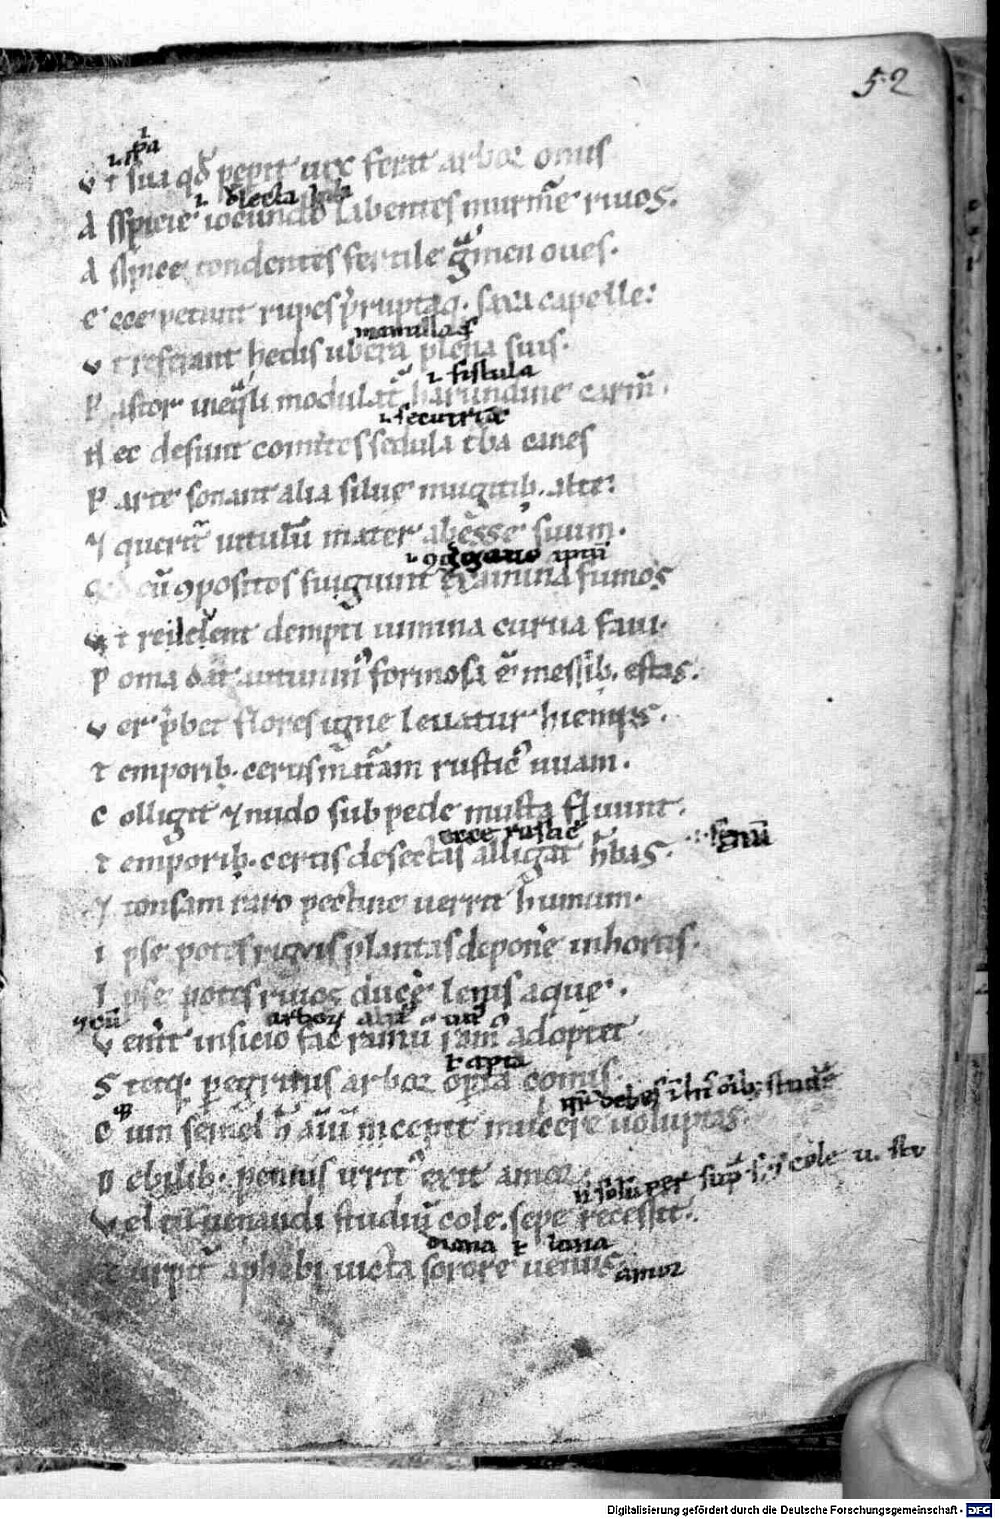 52
i. ip̄a
v t sua qđ pep̄it uix ferat arbor onus
i. delectabili
A sp̄icie iocundo labentes murm̄e riuos.
A sp̄ice tondentes fertile gͣmen oues.
E cce petunt rupes p̄ruptaq. saxa capelle.
mamillas
v t referant hedis ubera plena suis.
i. fistula
P astor ineq̄li modulat̄ harundine carm̄.
i. securitia
N ec desunt comites sedula t̄ba canes
P arte sonant alia silue mugitib. alte.
⁊ querit̄ uitulū mater abesse suum.
i. ꝯg̃gatio apiū
cū ꝯpositos fugiunt examina fumos
v t releuent dempti uimina curua faui.
P oma dat autumn̾ formosa ē messib. estas.
v er p̄bet flores igne leuatur hiemps.
t emporib. certis mat̄am rustic̾ uuam.
C olligit ⁊ nudo sub pede musta fluunt.
ecce rustic̾ fenū
t emporib. certis desectas alligat h̄bas.
⁊ tonsam raro pectine uerrit humum.
i pse potes riguis plantas depon̄e in hortis.
I pse potes riuos duc̄e lenis aque.
⁊ cū arbor aliā
v en̄it insicio fac ramū ram̾ adoptet
ł apta
S tetq. pegrinis arbor opta comis.
C um semel h̄ aīū incepit mulcere uoluptas.
D ebilib. pennis irrit̾ exit amor.
v el tu uenandi studiū cole. sepe recessit.
diana ł luna
t urpit̄ a phebi uicta sorore uenus.
amor
Digitalisierung gefördert durch die Deutsche Forschungsgemeinschaft - DFG